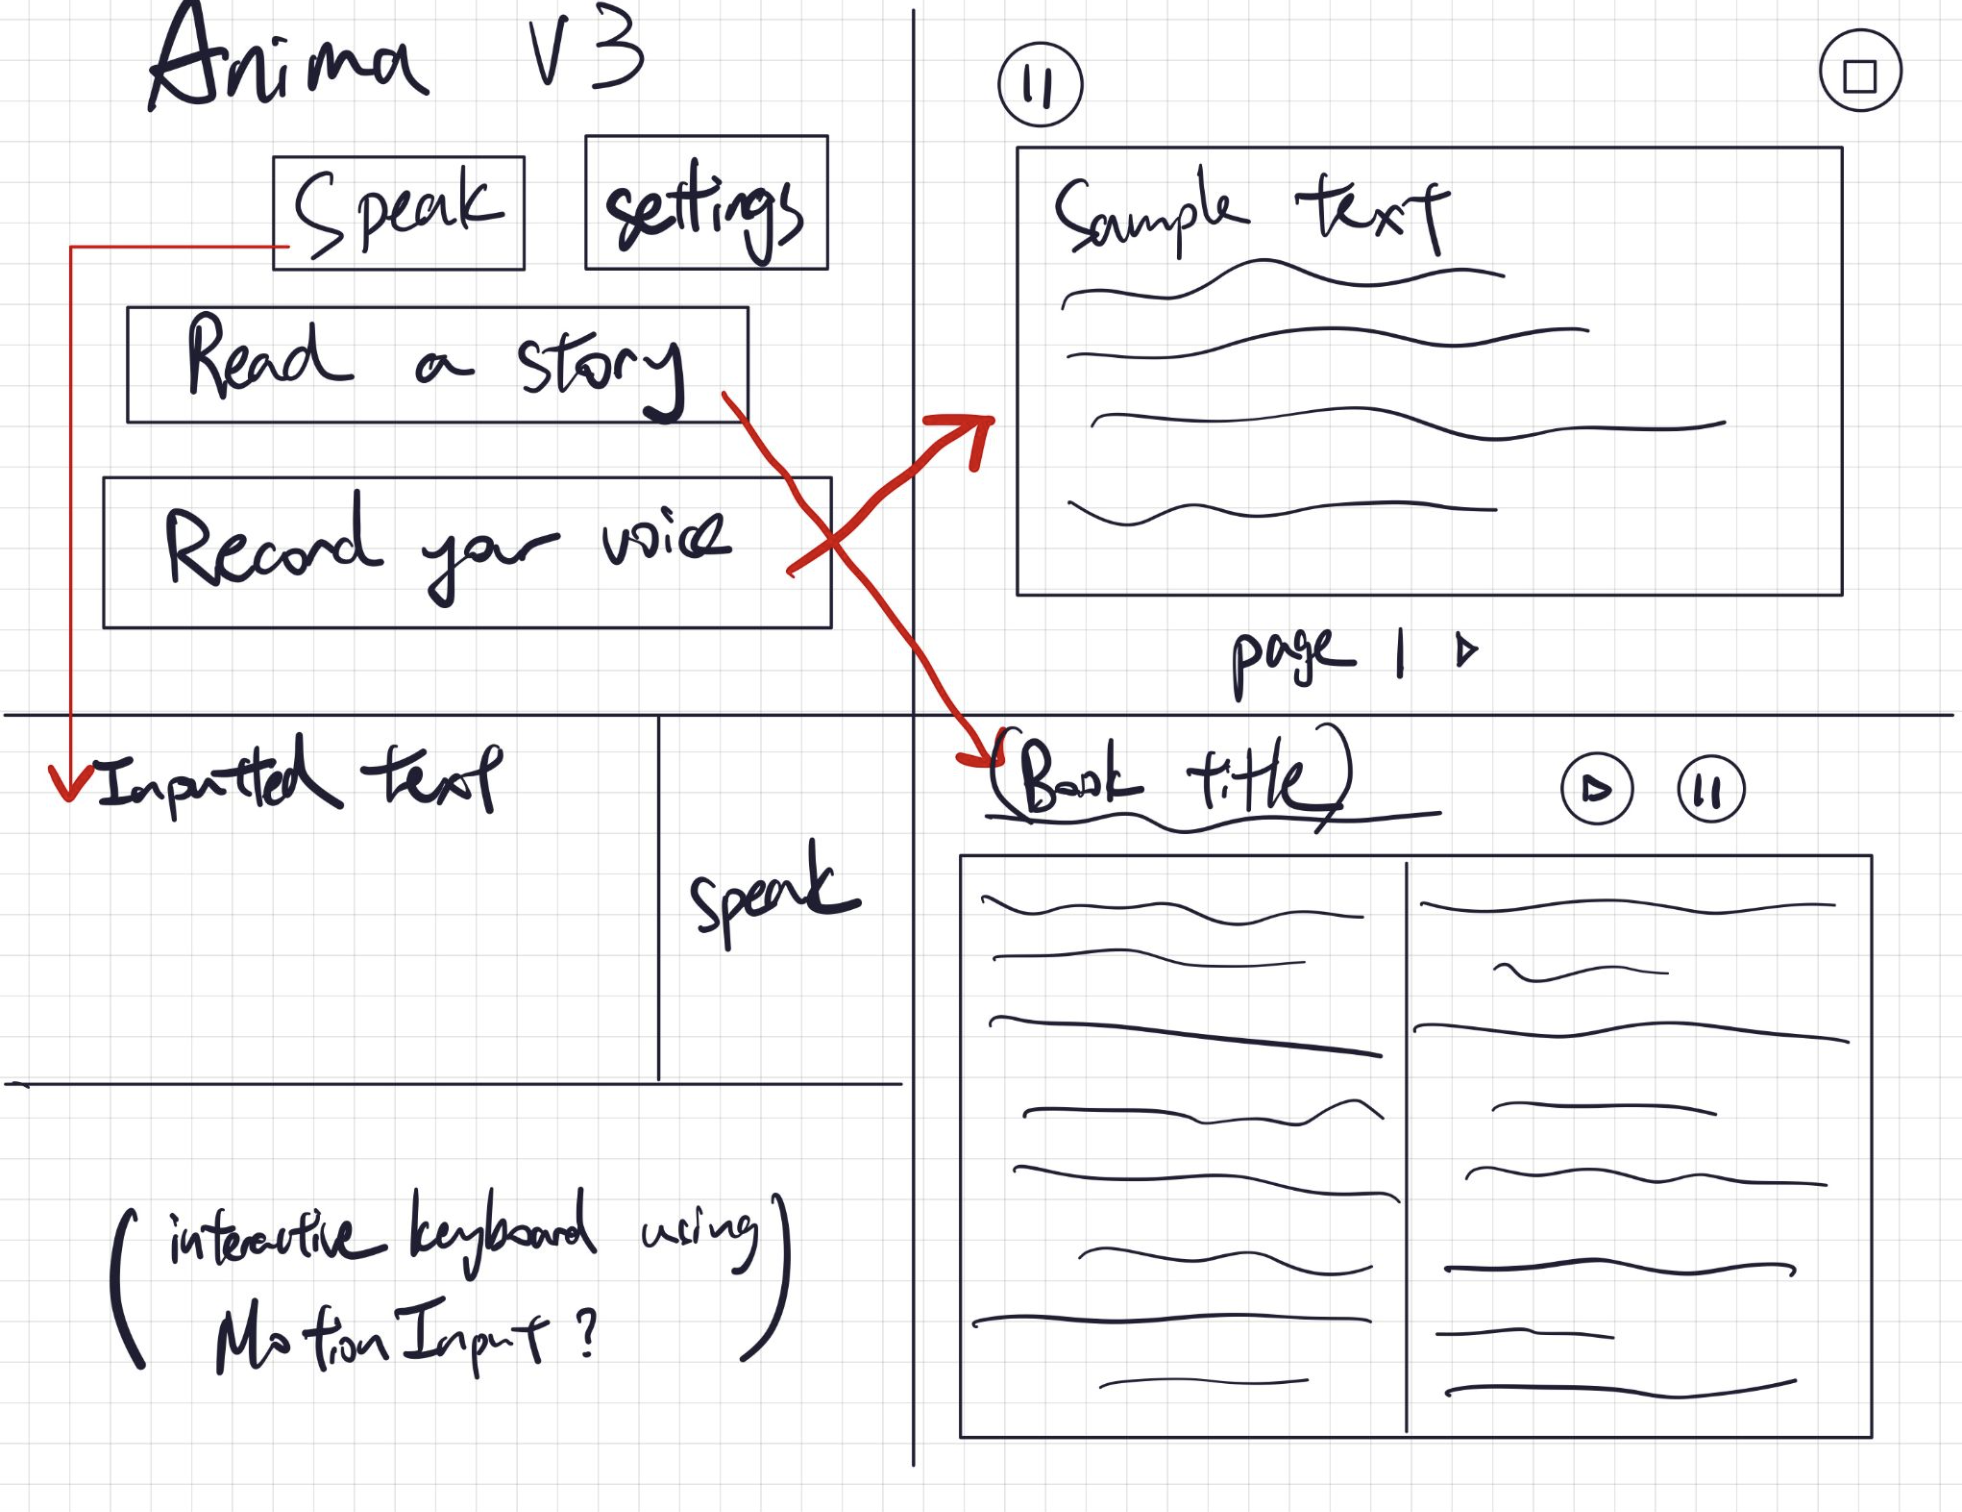 Anima V3
Speak
settings
Read a story
Record your voice
Sample text
page 1
Inputted text
speak
(Book title)
(interactive keyboard using
MotionInput?)